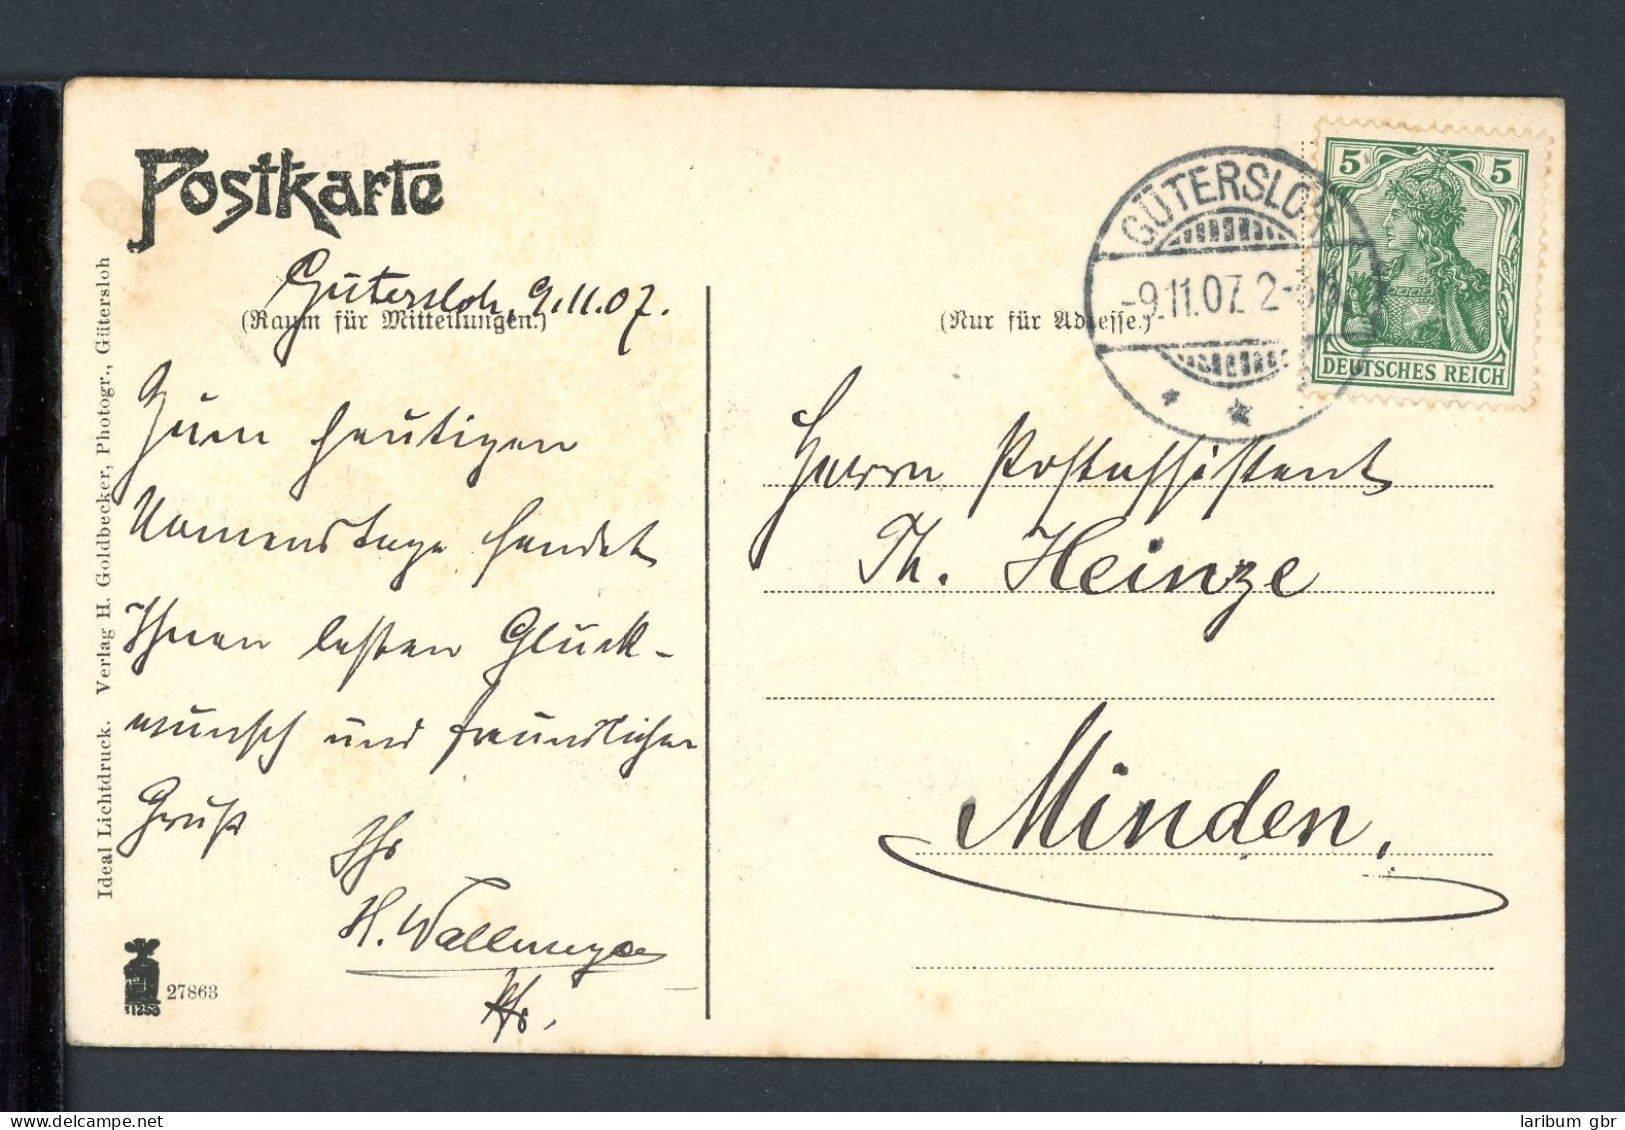 Postkarte
Gütersloh, 9.11.07.
(Raum für Mitteilungen.)
Zum heutigen
Namenstage sendet
Ihnen besten Glück-
wunsch und freundlichen
Gruß
Ihr
H. Wallmeyer
Ideal Lichtdruck. Verlag H. Goldbecker, Photogr., Gütersloh
11253
27863
GÜTERSLOH
-9.11.07. 2-3N.
5 5
DEUTSCHES REICH
(Nur für Adresse.)
Herrn Postassistent
Th. Heinze
Minden.
laribum gbr